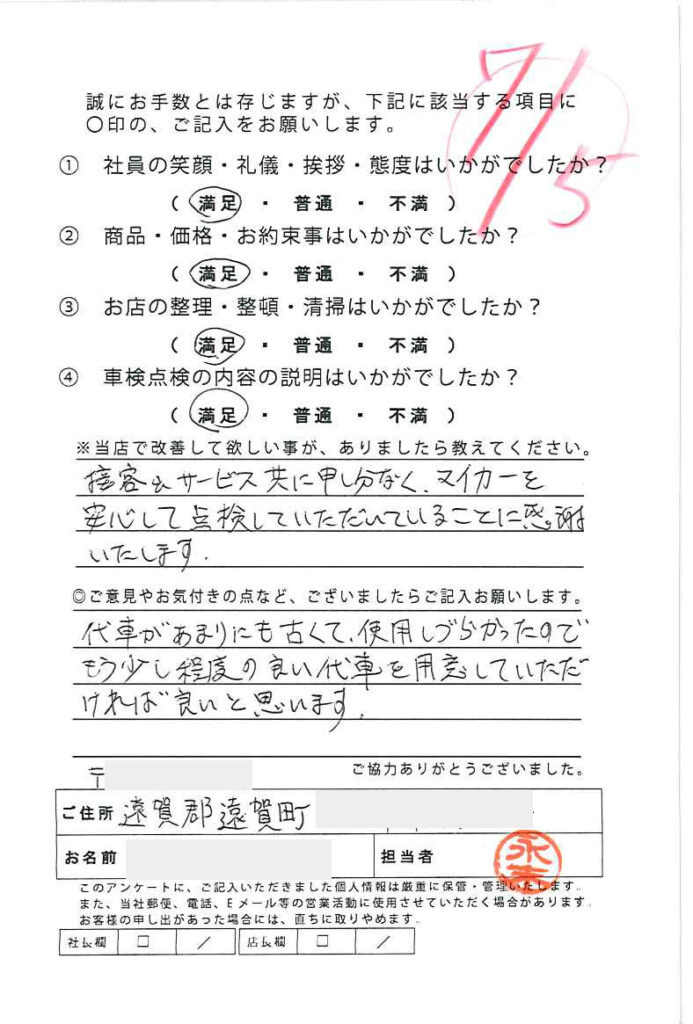 7/5
誠にお手数とは存じますが、下記に該当する項目に
〇印の、ご記入をお願いします。
① 社員の笑顔・礼儀・挨拶・態度はいかがでしたか？
（ 満足 ・ 普通 ・ 不満 ）
② 商品・価格・お約束事はいかがでしたか？
（ 満足 ・ 普通 ・ 不満 ）
③ お店の整理・整頓・清掃はいかがでしたか？
（ 満足 ・ 普通 ・ 不満 ）
④ 車検点検の内容の説明はいかがでしたか？
（ 満足 ・ 普通 ・ 不満 ）
※当店で改善して欲しい事が、ありましたら教えてください。
接客&サービス共に申し分なく、マイカーを
安心して点検していただいていることに感謝
いたします.
◎ご意見やお気付きの点など、ございましたらご記入お願いします。
代車があまりにも古くて、使用しづらかったので
もう少し程度の良い代車を用意していただ
ければ良いと思います.
〒
ご協力ありがとうございました。
ご住所 遠賀郡遠賀町
お名前 担当者
このアンケートに、ご記入いただきました個人情報は厳重に保管・管理いたします。
また、当社郵便、電話、Eメール等の営業活動に使用させていただく場合があります。
お客様の申し出があった場合には、直ちに取りやめます。
社長欄 □ ／ 店長欄 □ ／